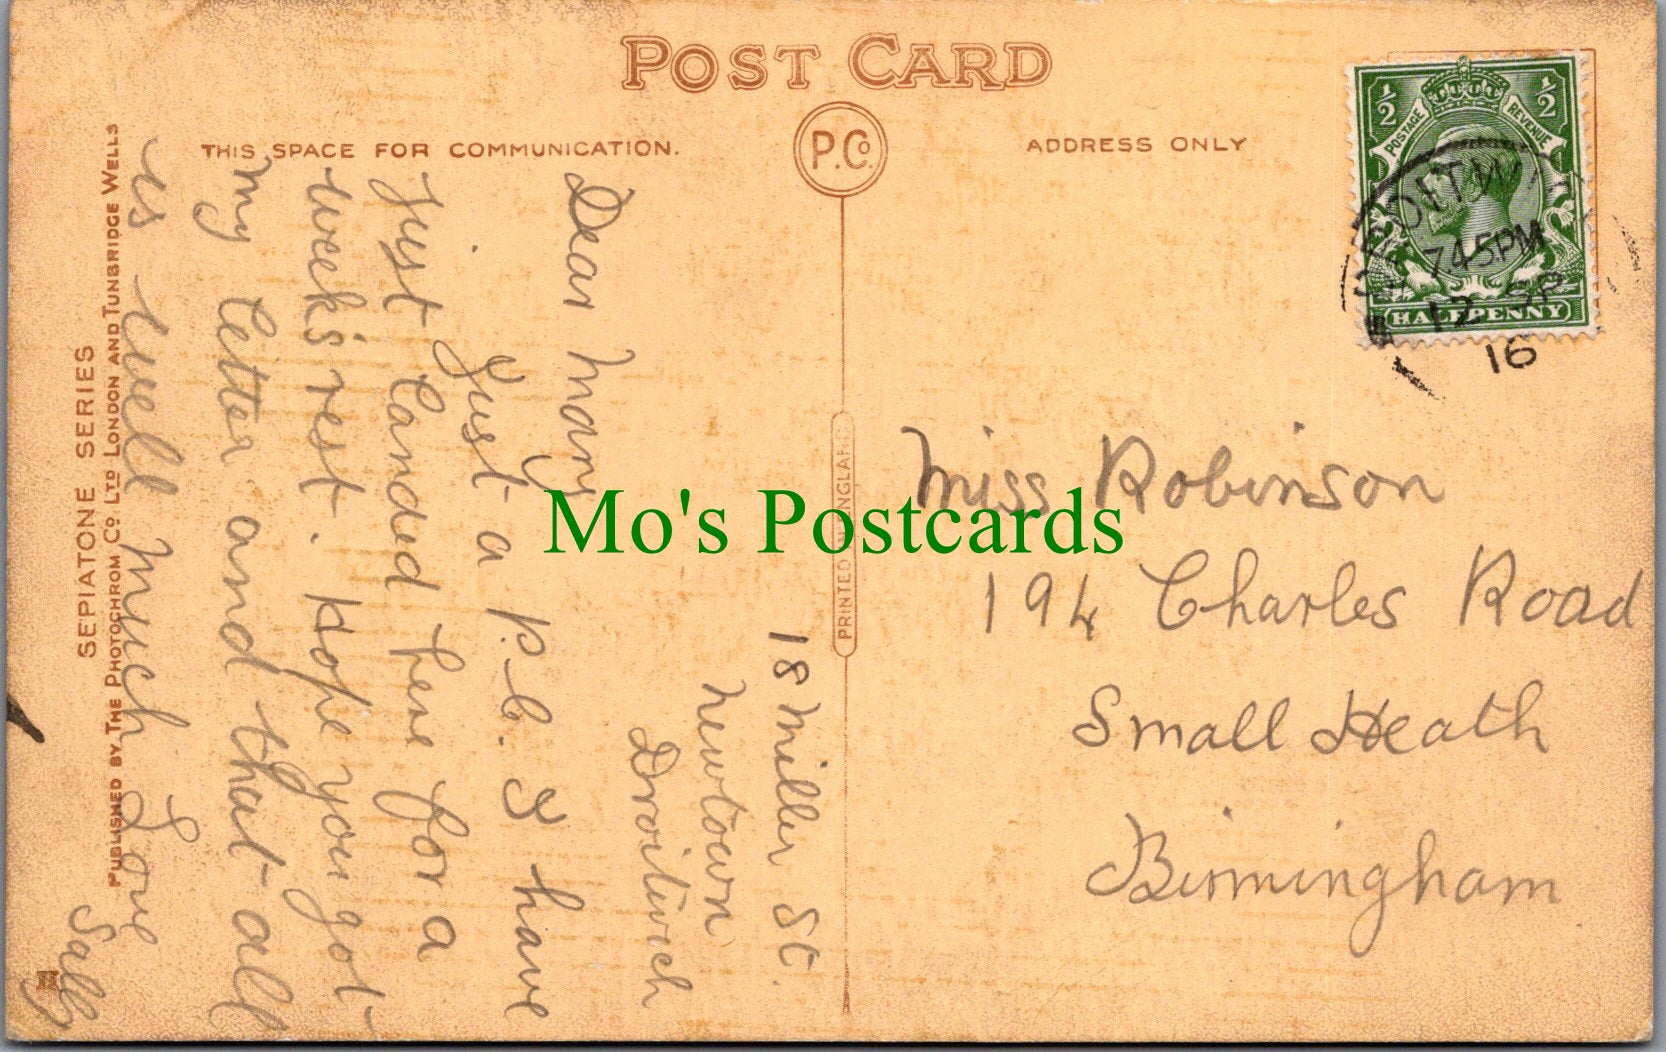 POST CARD
THIS SPACE FOR COMMUNICATION.
P.Co.
ADDRESS ONLY
½ ½
POSTAGE REVENUE
HALFPENNY
DROITWICH
7.45PM
12 SP
16
18 Miller St.
Newtown
Droitwich
Dear Mary
Just a P.C. I have
just landed here for a
weeks rest. Hope you got
my letter and that all
is well much Love
Sally
Miss Robinson
194 Charles Road
Small Heath
Birmingham
PRINTED IN ENGLAND
SEPIATONE SERIES
PUBLISHED BY THE PHOTOCHROM CO LTD LONDON AND TUNBRIDGE WELLS
Mo's Postcards